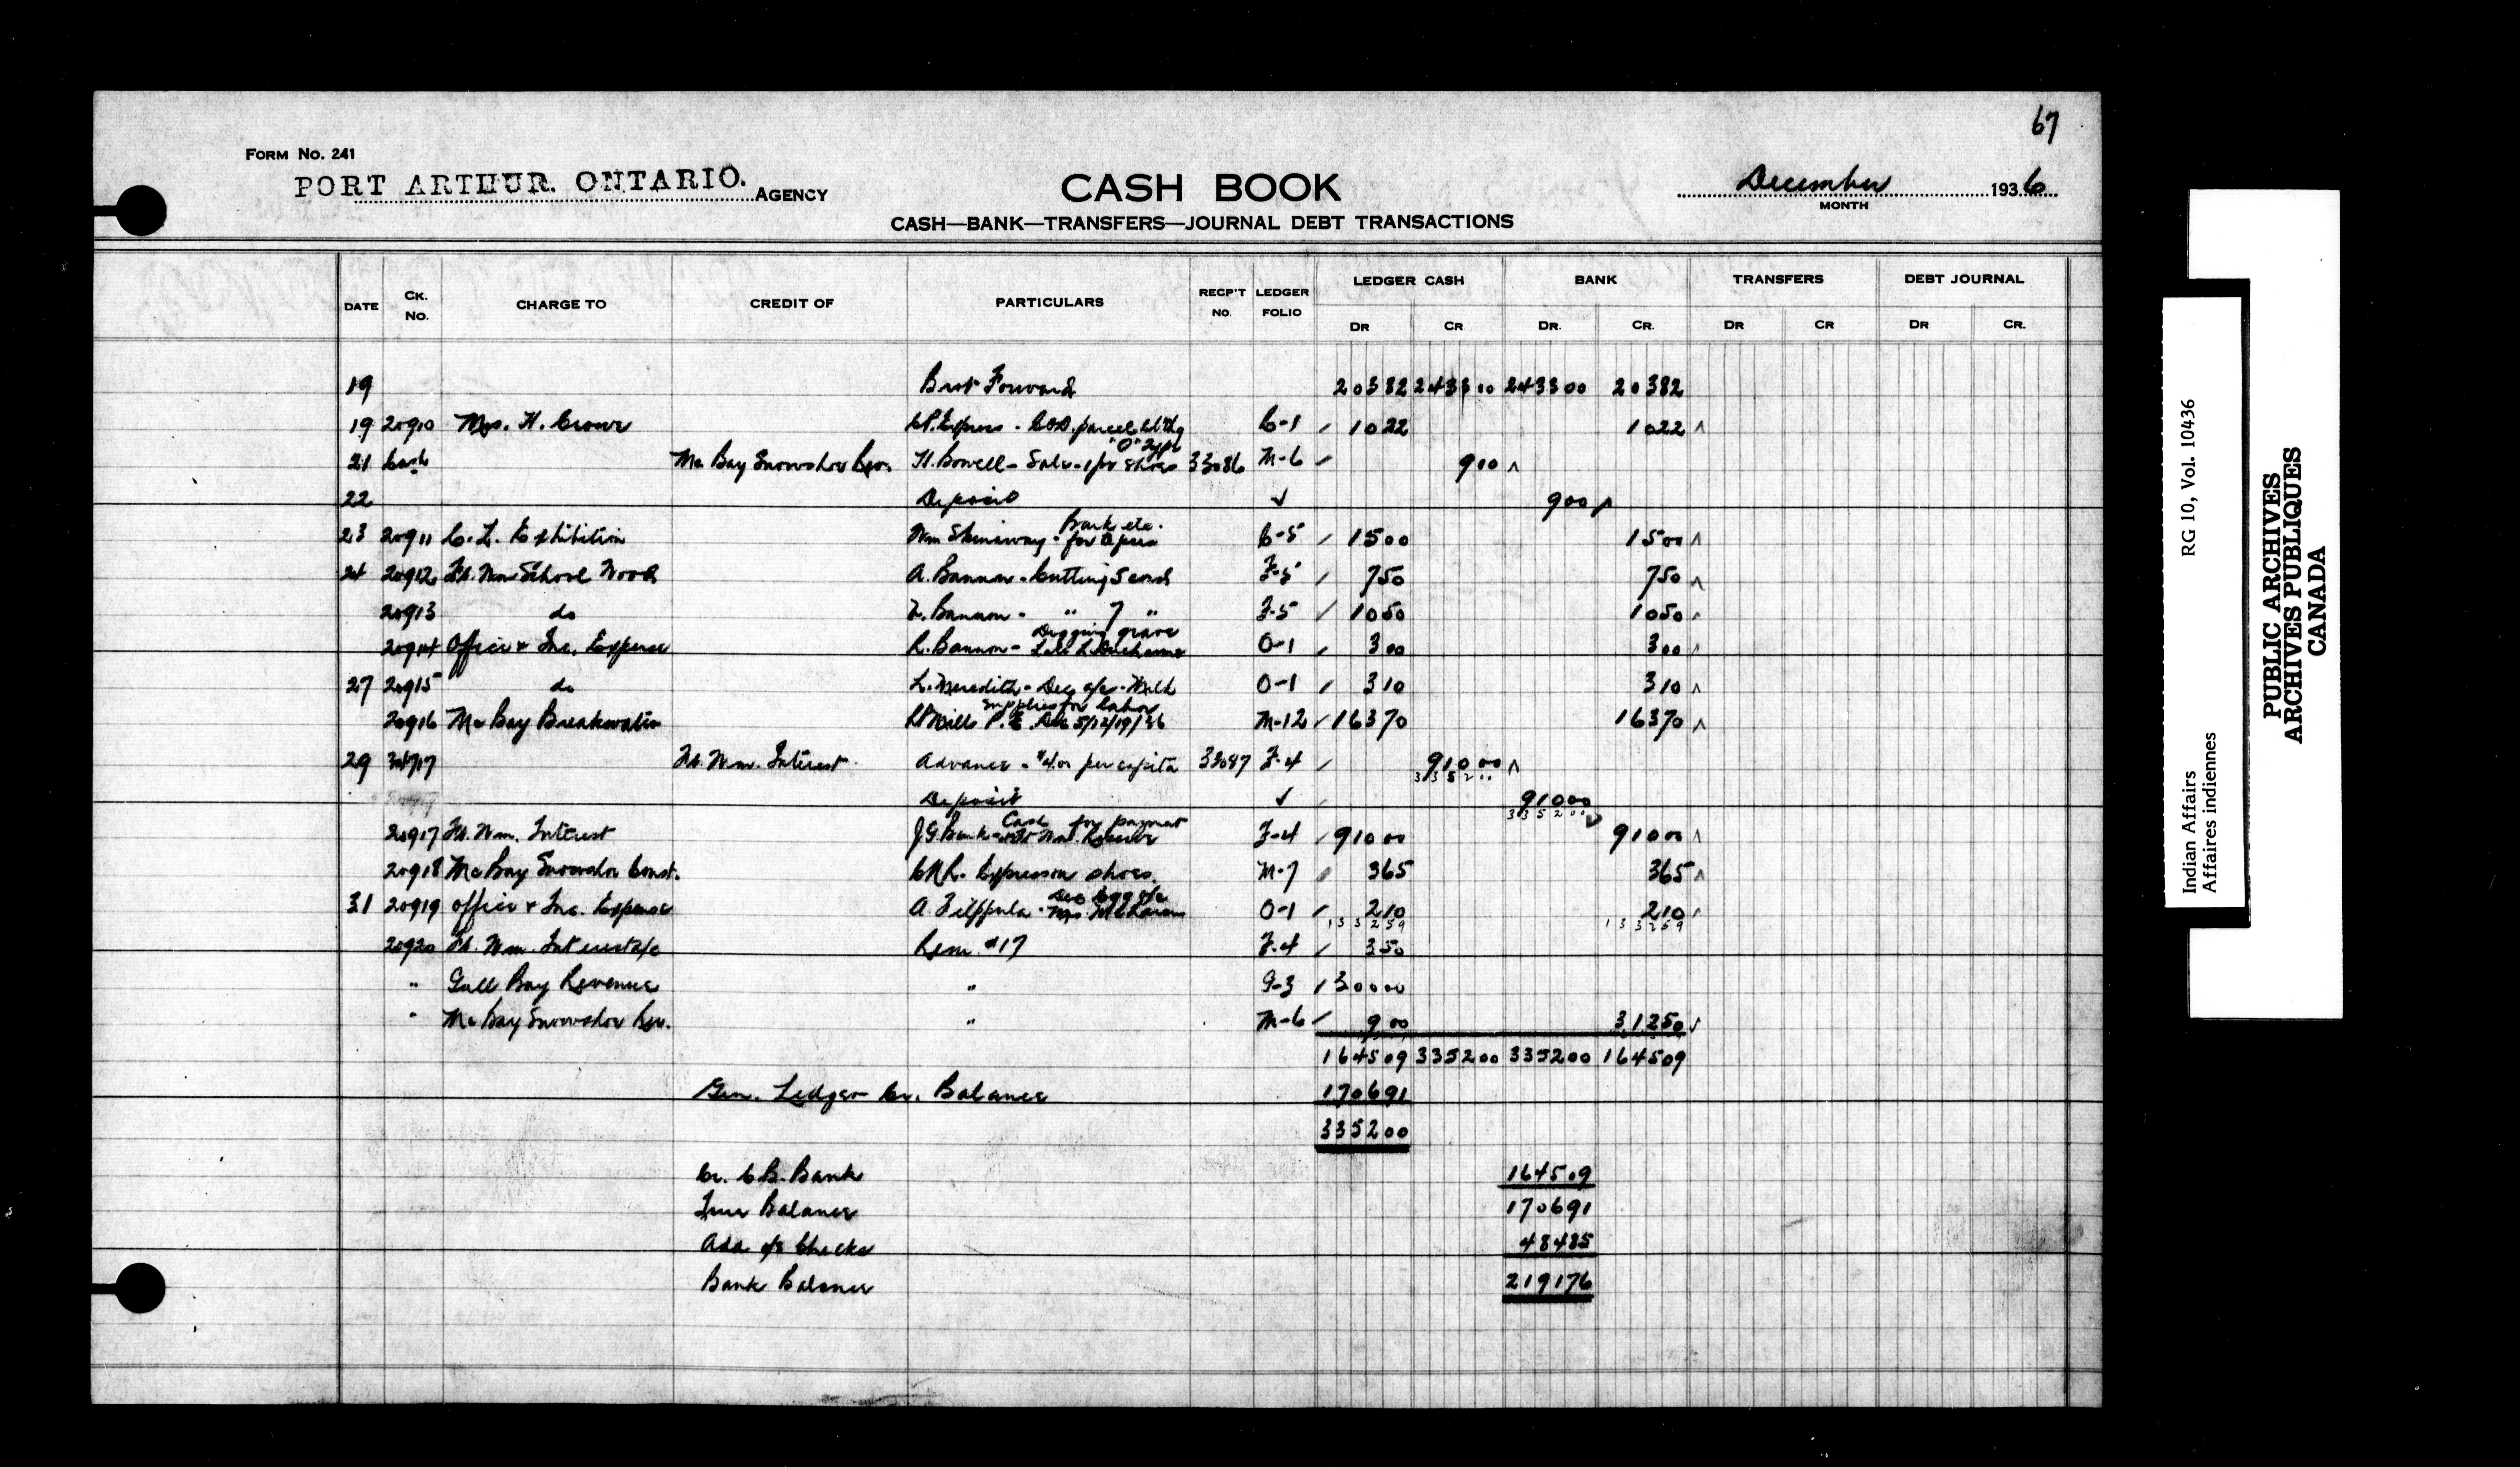 67
FORM NO. 241
PORT ARTHUR. ONTARIO. AGENCY
CASH BOOK
December 1936
MONTH
CASH—BANK—TRANSFERS—JOURNAL DEBT TRANSACTIONS
DATE CK. NO. CHARGE TO CREDIT OF PARTICULARS RECP'T NO. LEDGER FOLIO LEDGER CASH BANK TRANSFERS DEBT JOURNAL
DR CR DR. CR. DR CR DR CR.
19 Brot Forward 203 82 2433 00 2433 00 203 82
19 20910 Mrs. H. Crowe C.P. Express - C.O.D. parcel C-1 10 22 10 22
21 Cash Mc Bay Snowshoe Rev. H. Bowell - Sale - 1 pr shoes "O" Type 33086 M-6 9 00
22 Deposit ✓ 9 00
23 20911 C. L. Exhibition Wm - Bark etc. for C-5 15 00 15 00
24 20912 Ft. Wm School Wood A. Bannon - Cutting 5 cords F-5 7 50 7 50
20913 do L. Bannon - " 7 " F-5 10 50 10 50
20914 Office & Inc. Expense R. Bannon - Digging grave Late L. Ducharme O-1 3 00 3 00
27 20915 do L. Meredith - Dec a/c - Milk O-1 3 10 3 10
20916 Mc Bay Breakwater Supplies for labor 5/12/19/36 M-12 163 70 163 70
29 Ft. Wm. Interest Advance - $4.00 per capita 33087 F-4 910 00
3352 00
Deposit ✓ 910 00
3352 00
20917 Ft. Wm. Interest Cash for payment F-4 910 00 910 00
20918 Mc Bay Snowshoe Const. C.N.R. Express on shoes M-7 3 65 3 65
31 20919 Office & Inc. Expense A. Filppula - Mrs. O-1 2 10 2 10
1332 59 1332 59
20920 Ft. Wm. Interest a/c Rem. #17 F-4 3 50
" Gull Bay Revenue " G-3 300 00
" Mc Bay Snowshoe Rev. " M-6 9 00 312 50
1645 09 3352 00 3352 00 1645 09
Gen. Ledger Cr. Balance 1706 91
3352 00
Cr. C.B. Bank 1645 09
True Balance 1706 91
Add o/s Checks 484 85
Bank Balance 2191 76
Indian Affairs RG 10, Vol. 10436
Affaires indiennes
PUBLIC ARCHIVES
ARCHIVES PUBLIQUES
CANADA